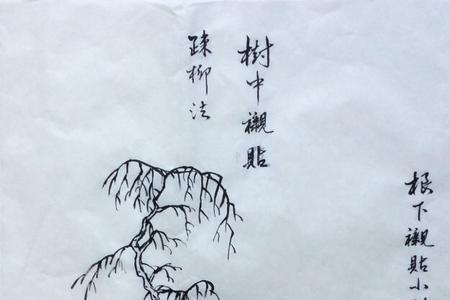 根下襯貼小
樹中襯貼
疎柳法